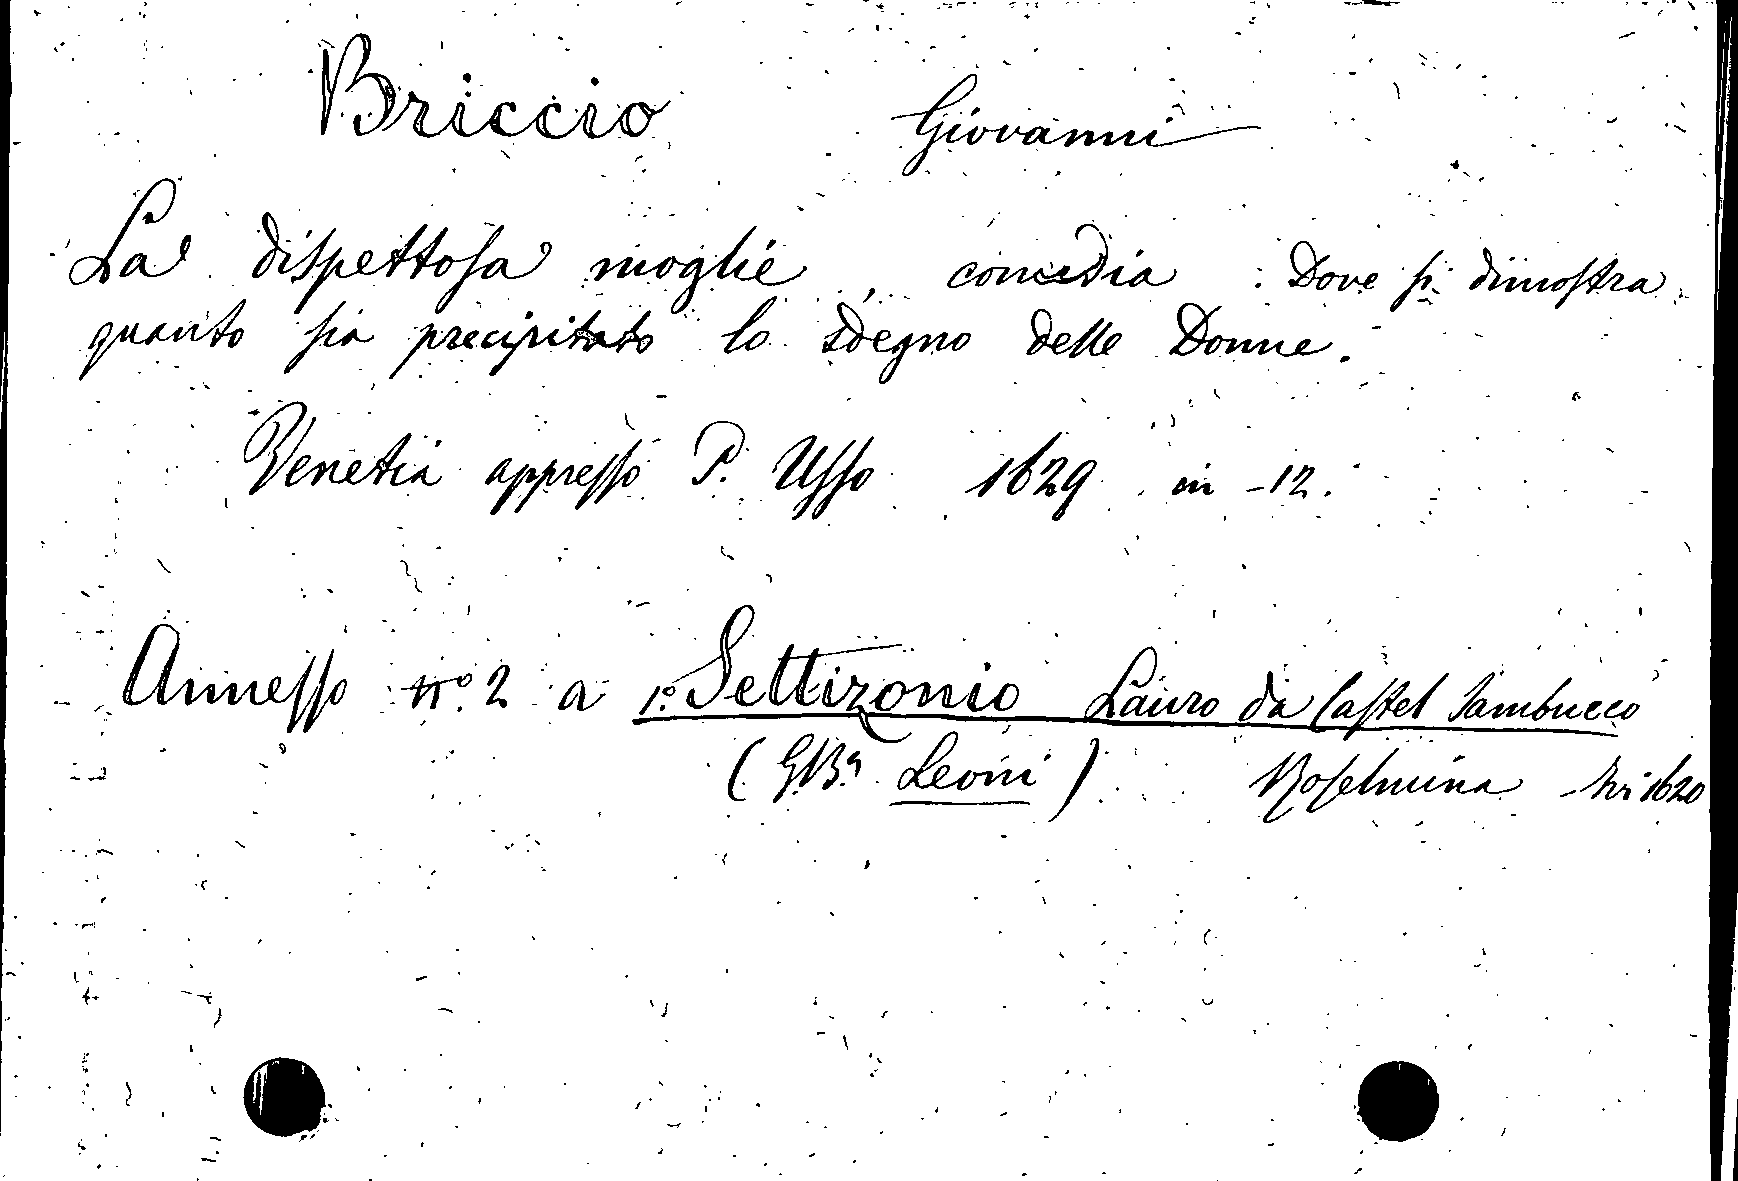 Briccio Giovanni
La dispettosa moglie, comedia : Dove si dimostra
quanto sia precipitato lo sdegno delle Donne.
Venetia appresso P. Usso 1629 in -12.
Annesso n.º 2 a 1.º Settizonio Lauro da Castel Sambucco
(G.B.ª Leoni) Roselmina - Ivi 1620